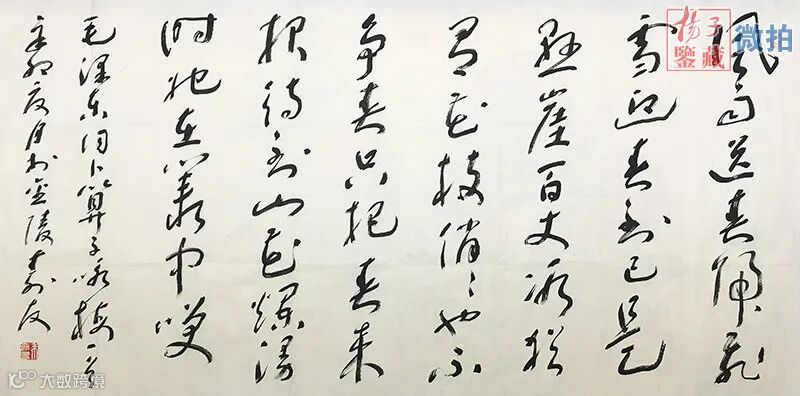 風雨送春歸飛
雪迎春到已是
懸崖百丈冰猶
有花枝俏〻也不
争春只把春来
报待到山花爛漫
时她在叢中笑
毛泽东词卜算子咏梅一首
辛卯夏月于金陵 友
楊子鑒藏
微拍
大数跨境